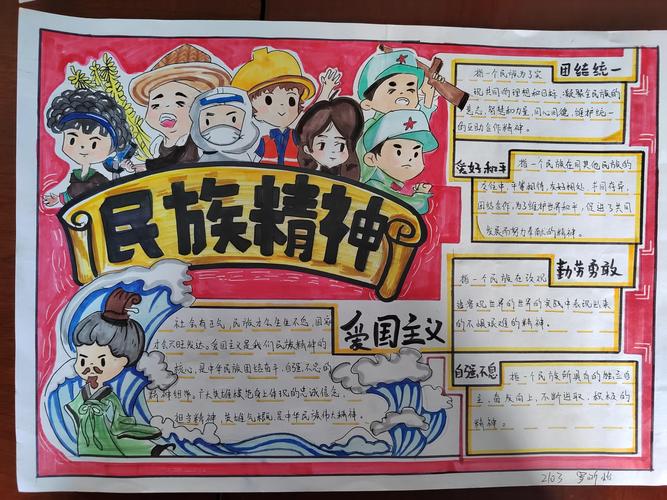 民族精神
爱国主义
社会有正气，民族才会生生不息，国家
才会兴旺发达。爱国主义是我们民族精神的
核心，是中华民族团结奋斗、自强不息的
精神纽带。广大英雄模范身上体现的忠诚信念、
担当精神、英雄气概，是中华民族伟大精神。
团结统一
指一个民族为了实
现共同的理想和目标，凝聚全民族的
意志、智慧和力量，同心同德，维护统一
的互助合作精神。
爱好和平
指一个民族在同其他民族的
交往中，平等相待、友好相处、共同存异，
团结合作，为了维护世界和平，促进了共同
发展而努力奉献的精神。
勤劳勇敢
指一个民族在改观
造客观世界的世界的实践中表现出来
的不惧艰难的精神。
自强不息
指一个民族所具有的独立自
主、奋发向上、不断进取、积极的
精神。
2103 罗昕怡